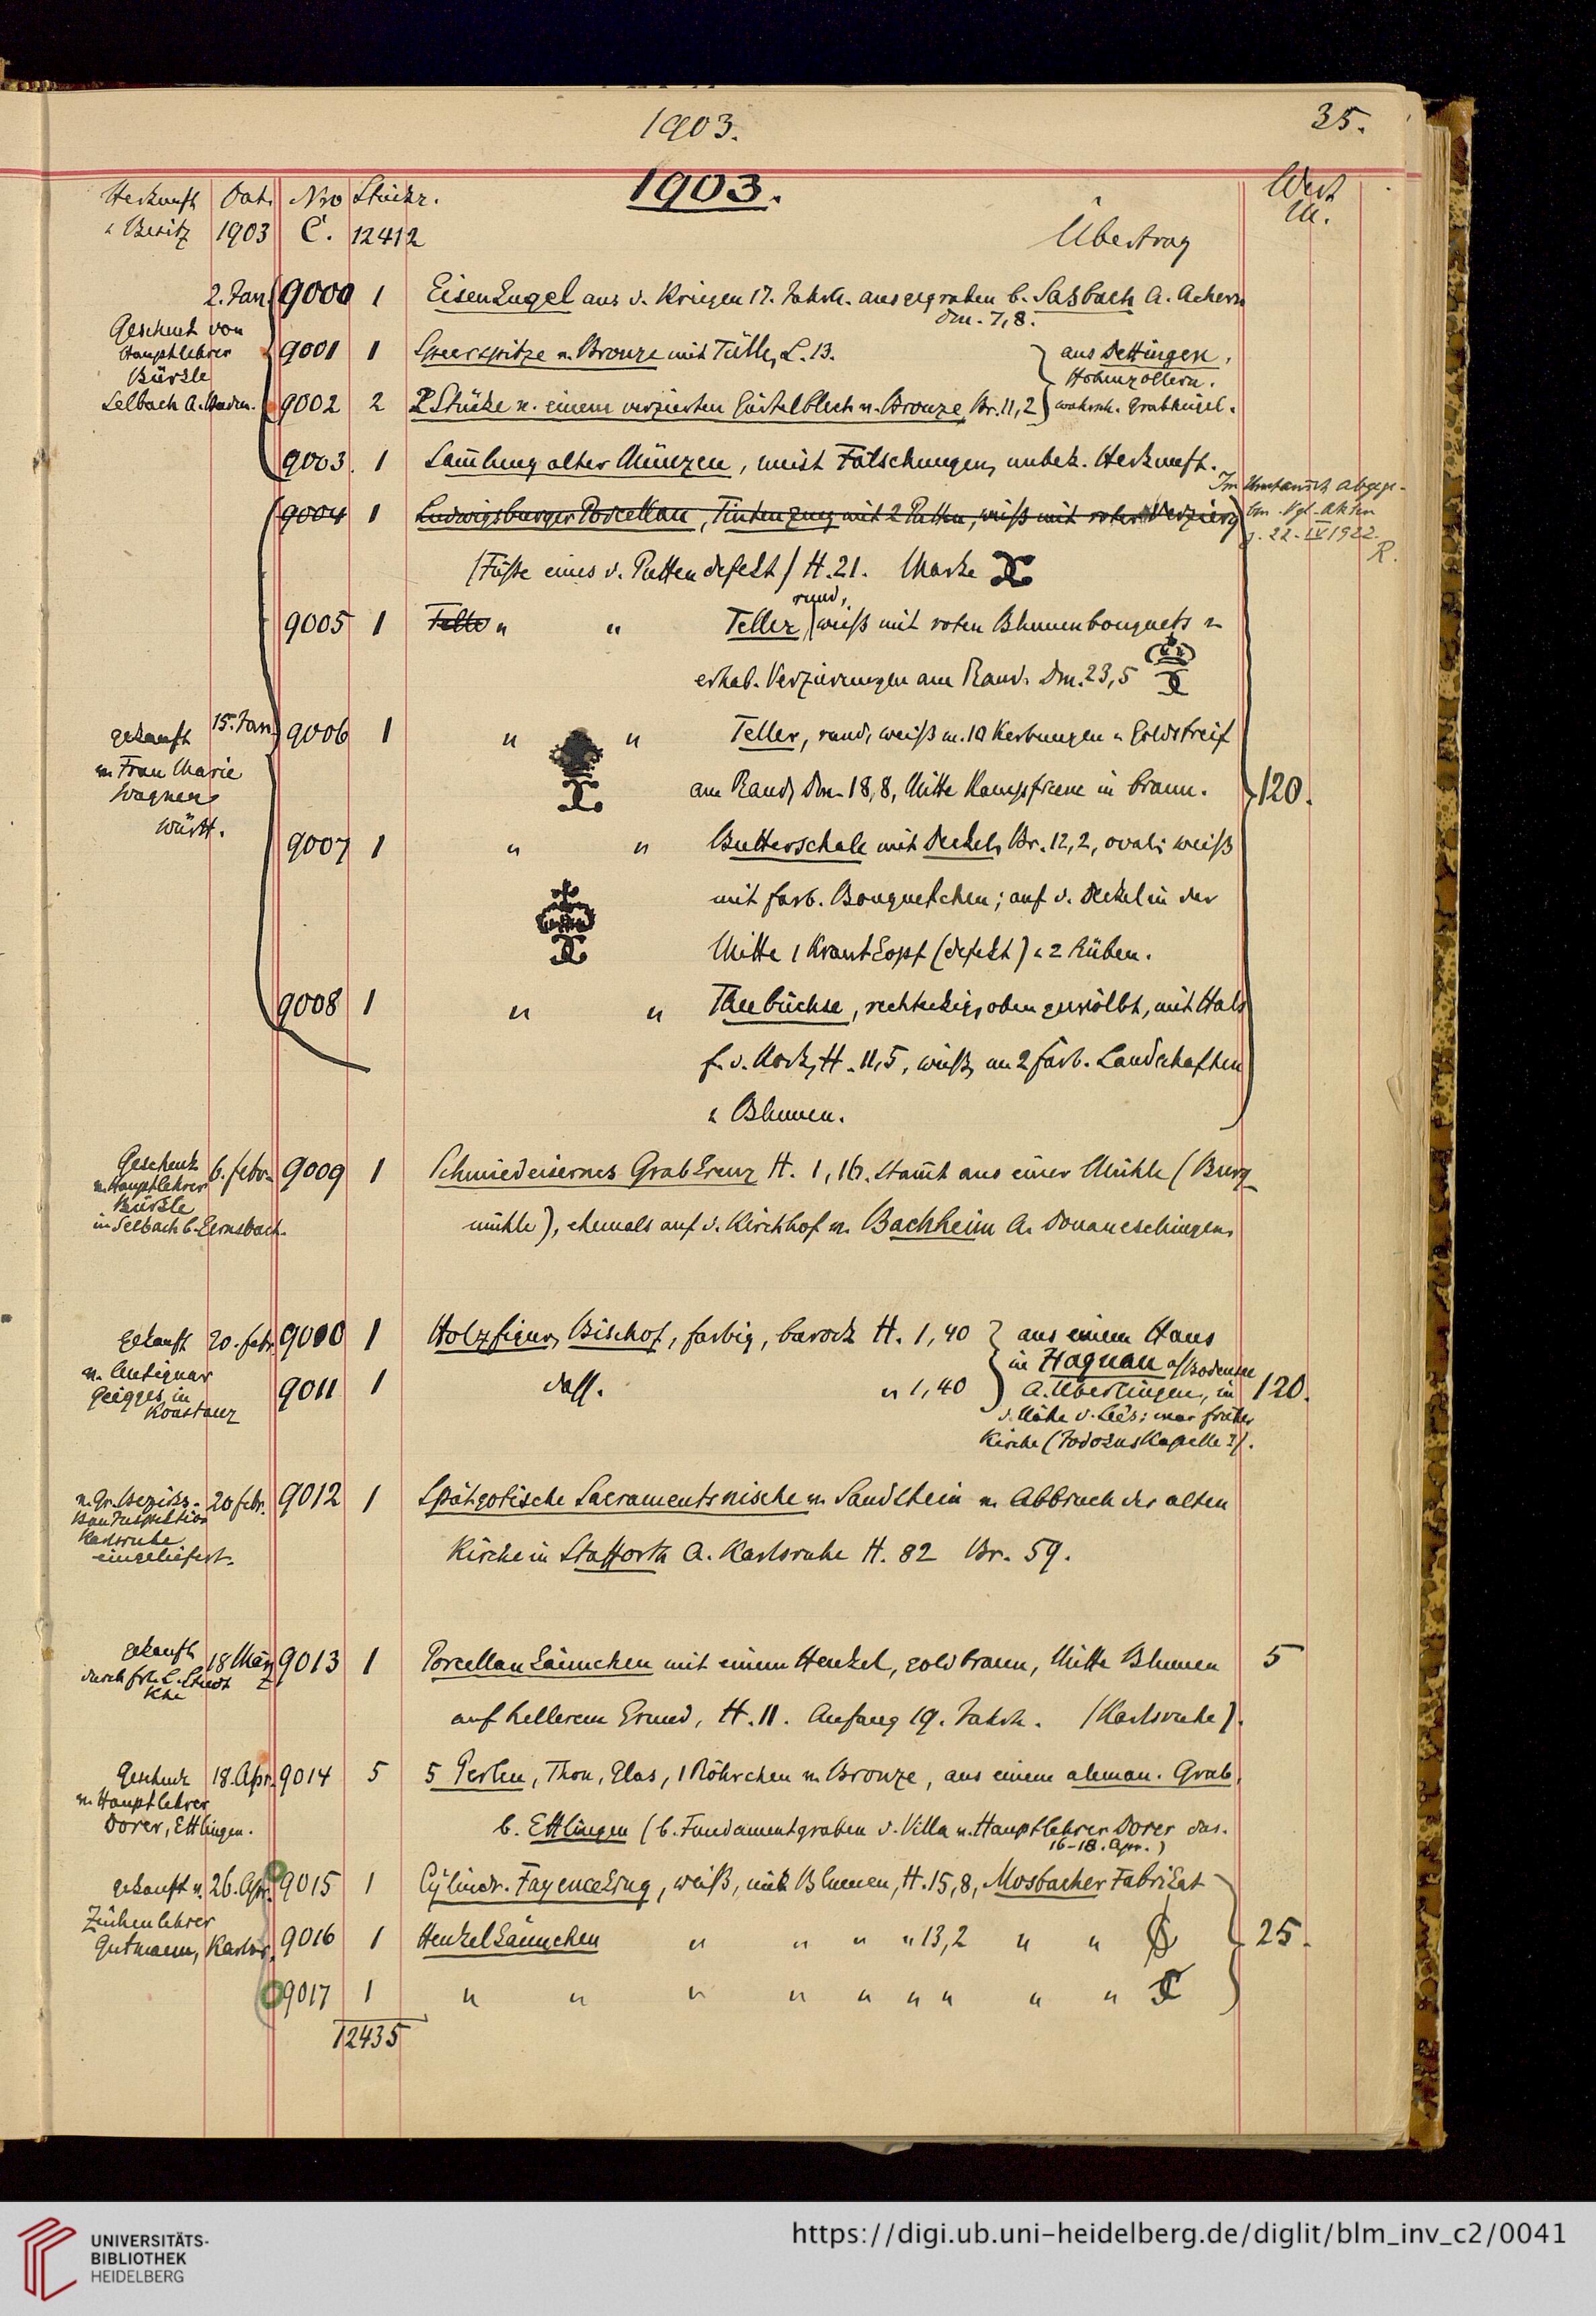 1903.
35.
1903.
Herkunft Dat. Nro Stückz. Wert
& Besitz 1903 C. 12412 Übertrag M.
2. Jan. 9000 1 Eisenkugel aus d. Kriegen 17. Jahrh. ausgegraben b. Sasbach A. Achern
Dm. 7,8.
Geschenk von
Hauptlehrer
Bürkle
Selbach A.
9001 1 Speerspitze v. Bronze mit Tülle, L. 13. aus Dettingen,
Hohenzollern.
9002 2 2 Stücke v. einem verzierten Gürtelblech v. Bronze Br. 11,2 wahrsch. Grabhügel.
9003. 1 Sam̄lung alter Münzen, meist Fälschungen, unbek. Herkunft.
Im Umtausch abgege-
ben. Vgl. Akten
v. 22. IV 1922.
R.
9004 1 Ludwigsburger Porcellan, Tintenzeug mit 2 Putten, weiß mit roter Verzierg
(Füße eines d. Putten defekt) H. 21. Marke
9005 1 Telle " " Teller, rund, weiß mit roten Blumenbouquets u
erhab. Verzierungen am Rand. Dm. 23,5
gekauft
v. Frau Marie
Wagner,
Württ.
15. Jan. 9006 1 " " Teller, rund, weiß m. 10 Kerbungen u Goldstreif
am Rand, Dm. 18,8, Mitte in braun. 120.
9007 1 " " Butterschale mit Deckel, Br. 12,2, oval; weiß
mit farb. Bouquetchen; auf d. Deckel in der
Mitte 1 Krautkopf (defekt) & 2 Rüben.
9008 1 " " Theebüchse, rechteckig, oben gewölbt, mit Hals
f. d. H. 11,5, weiß, m 2 farb. Landschaften
& Blumen.
Geschenk
v. Hauptlehrer
Bürkle
in Selbach b. Gernsbach.
6. Febr. 9009 1 Schmiedeisernes Grabkreuz H. 1,16. stam̄t aus einer Mühle (Burg
mühle), ehemals auf d. Kirchhof v. Bachheim A. Donaueschingen.
gekauft
v. Antiquar
Geigges in
Konstanz
20. Febr. 9010 1 Holzfigur, Bischof, farbig, barock H. 1,40 aus einem Haus
in Hagnau a/Bodensee
9011 1 dass. " 1,40 A. Überlingen, in 120.
d. Nähe d. Sees; war früher
Kirche (Jodokus Kapelle?).
v. Gr. Bezirks-
Bau Inspektion
Karlsruhe
eingeliefert.
20 Febr. 9012 1 Spätgotische Sacramentsnische v. Sandstein v. Abbruch der alten
Kirche in Staffort A. Karlsruhe H. 82 Br. 59.
gekauft
durch Frl. L.
Khe
18 März 9013 1 Porcellankännchen mit einem Henkel, goldbraun, Mitte Blumen 5
auf hellerem Grund, H. 11. Anfang 19. Jahrh. (Karlsruhe).
Geschenk
v. Hauptlehrer
Dorer, Ettlingen.
18. Apr. 9014 5 5 Perlen, Thon, Glas, 1 Röhrchen v. Bronze, aus einem aleman. Grab
b. Ettlingen (b. Fundamentgraben d. Villa v. Hauptlehrer Dorer das.
16-18. Apr.)
gekauft v.
Zeichenlehrer
Gutmann, Karlsr.
26. Apr. 9015 1 Cylindr. Fayencekrug, weiß, mit Blumen, H. 15,8, Mosbacher Fabrikat
9016 1 Henkelkännchen " " " " 13,2 " " 25.
9017 1 " " " " " " " " "
12435
UNIVERSITÄTS-
BIBLIOTHEK
HEIDELBERG
https://digi.ub.uni-heidelberg.de/diglit/blm_inv_c2/0041